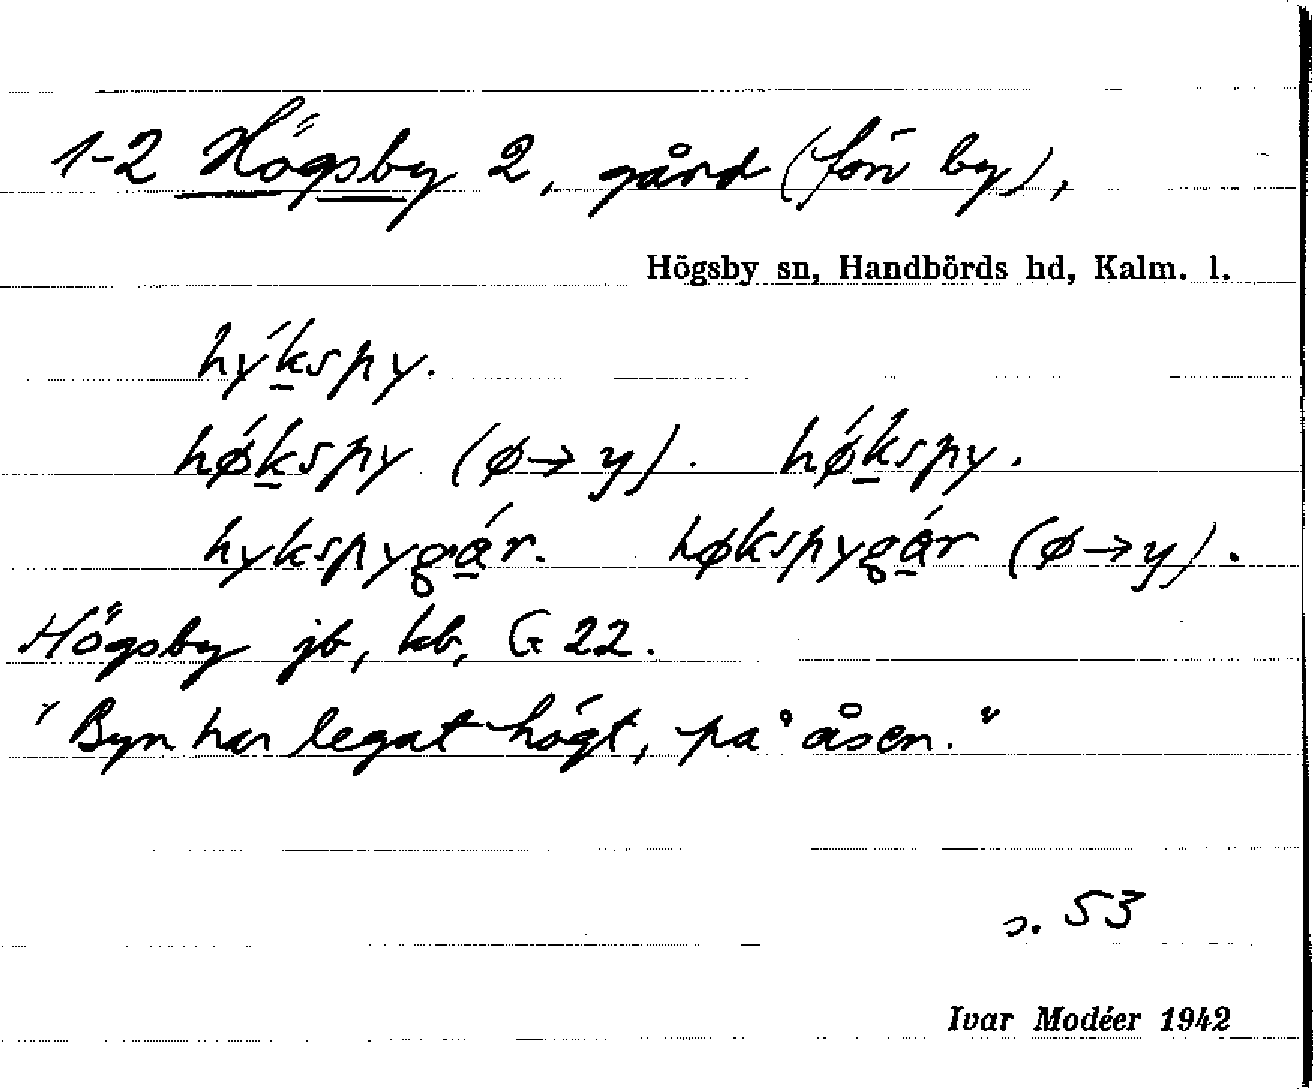 1-2 Högsby 2, gård (förr by),
Högsby sn, Handbörds hd, Kalm. l.
hýkspy.
hǿkspy (ø→y). hǿkspy.
hykspygár. høkspygár (ø→y).
Högsby jb, kb, G 22.
"Byn har legat högt, på åsen."
s. 53
Ivar Modéer 1942